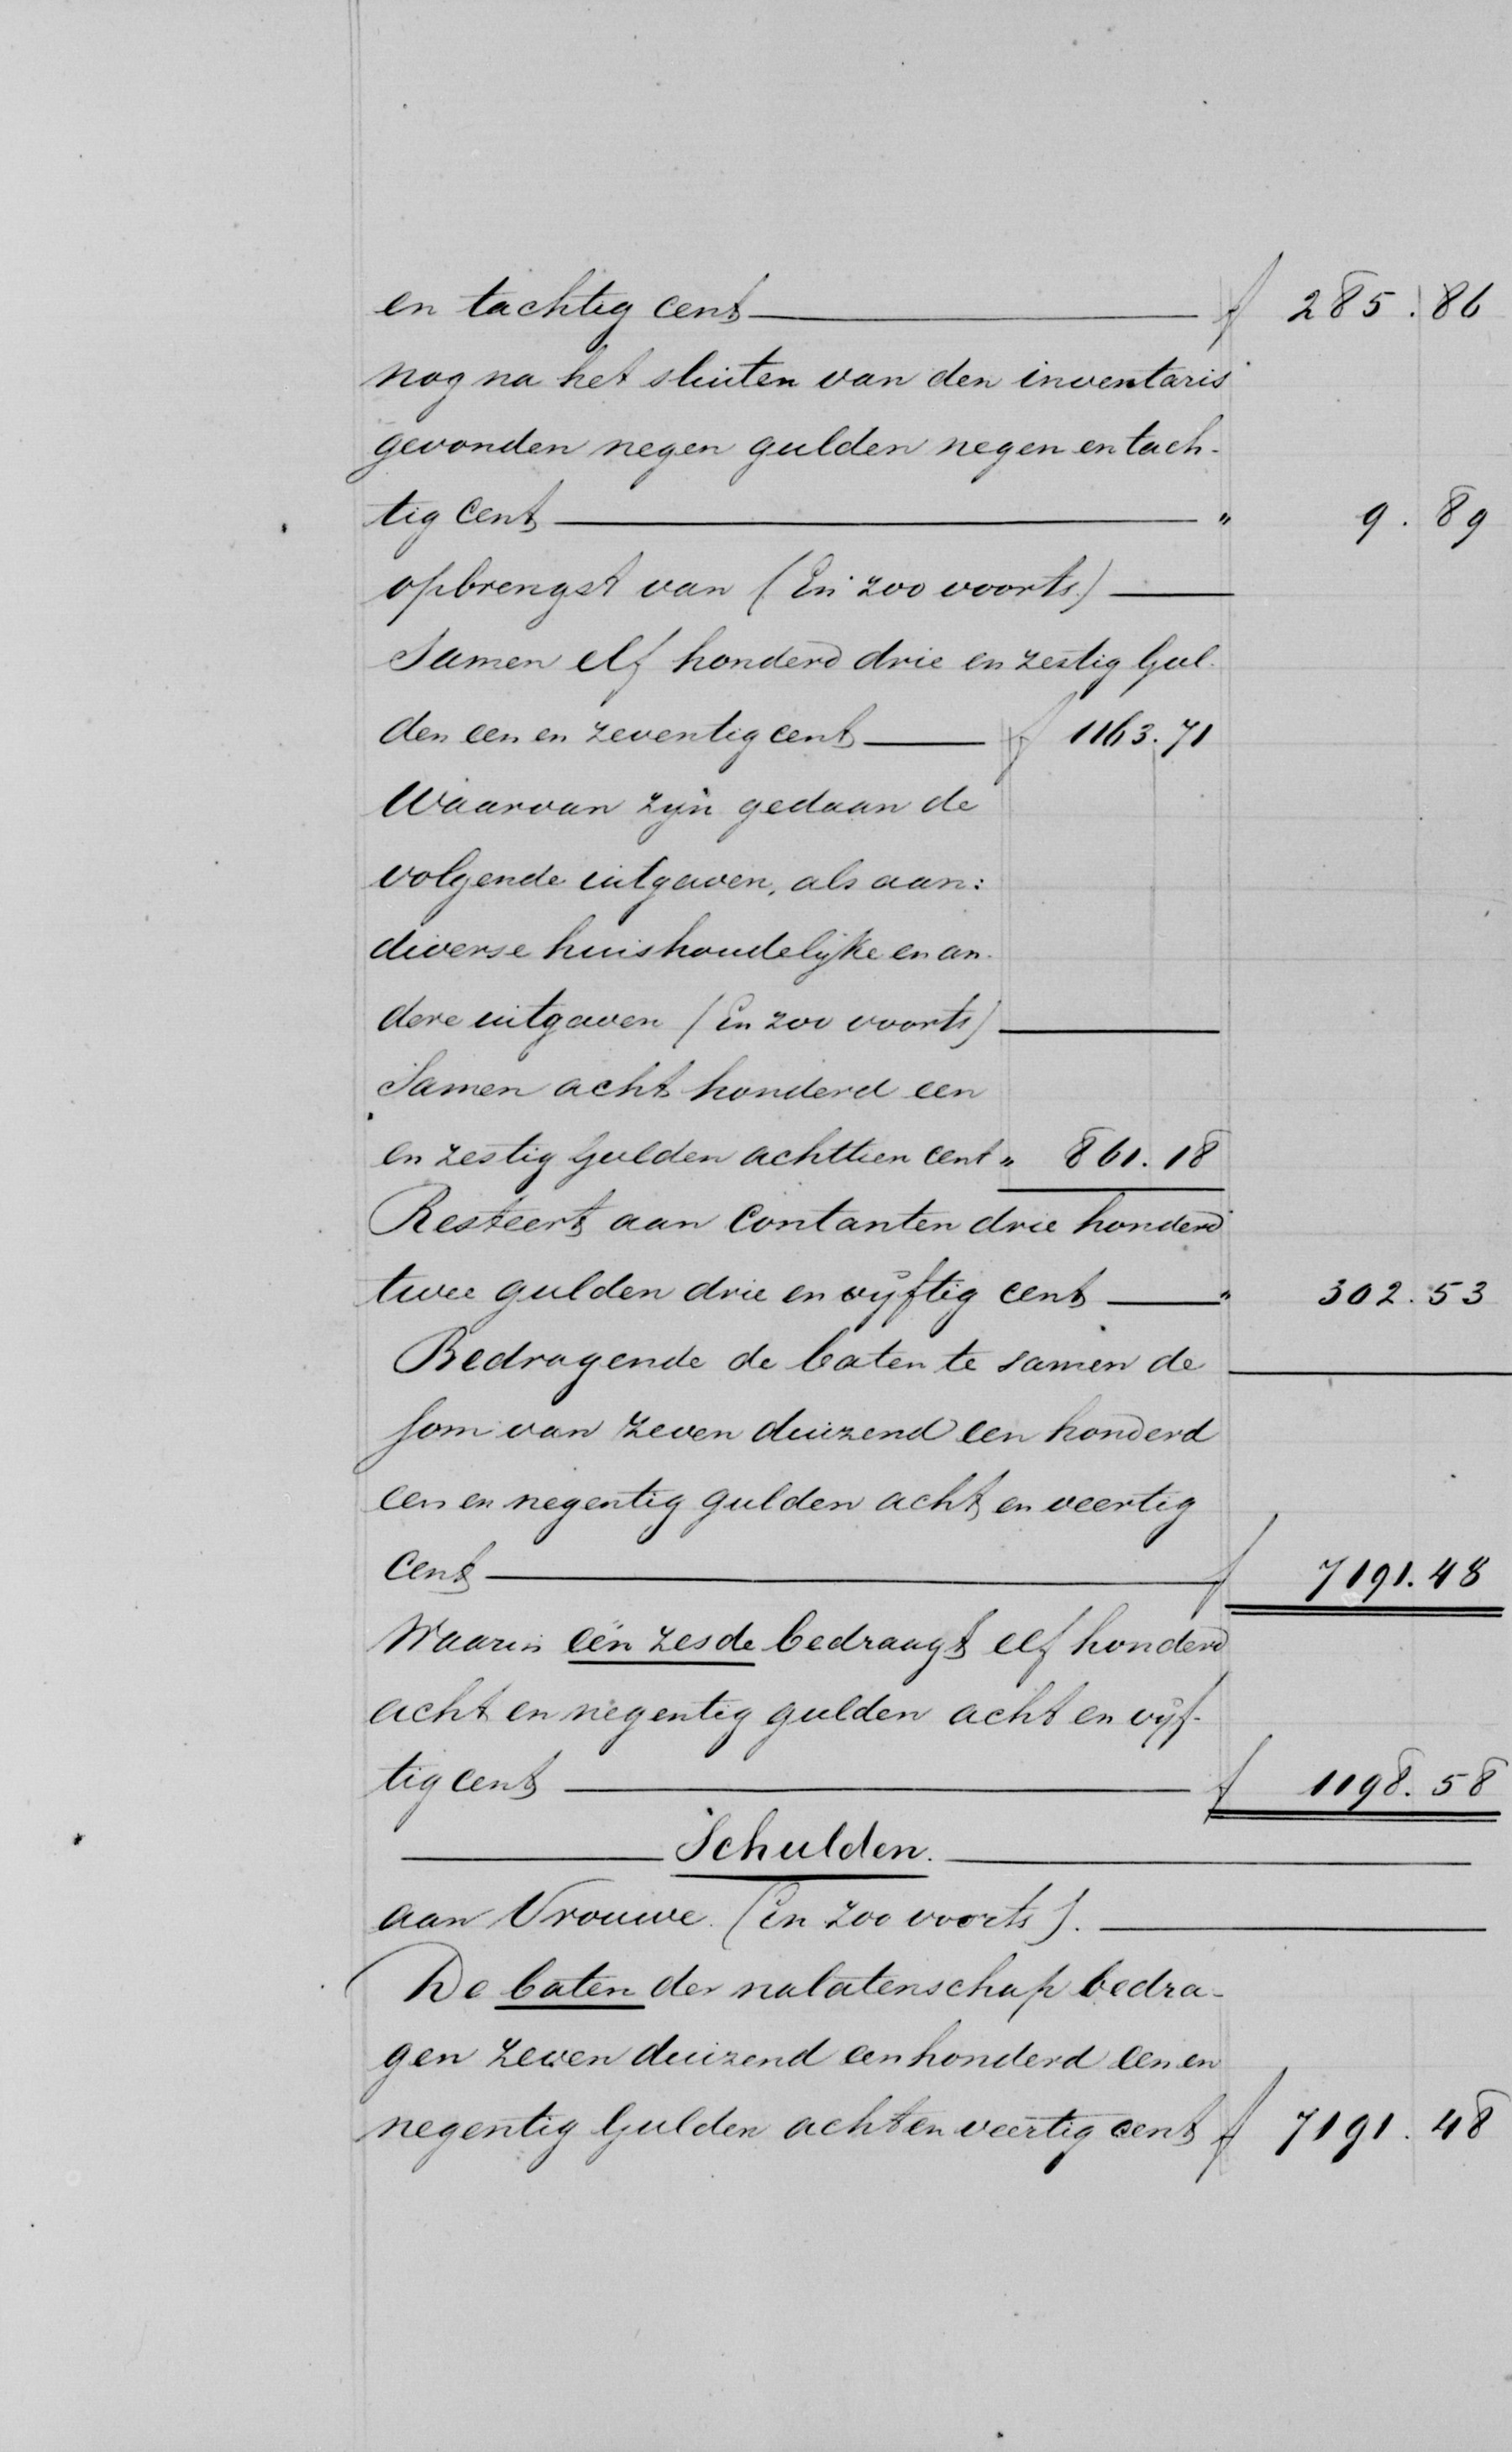 en tachtig cent ƒ 285.86
nog na het sluiten van den inventaris
gevonden negen gulden negen en tach-
tig cent " 9.89
opbrengst van (En zoo voorts)
Samen elf honderd drie en zestig Gul-
den een en zeventig cent ƒ 1163.71
Waarvan zijn gedaan de
volgende uitgaven, als aan:
diverse huishoudelijke en an-
dere uitgaven (En zoo voorts)
Samen acht honderd een
en zestig Gulden achttien cent " 861.18
Resteert aan Contanten drie honderd
twee gulden drie en vijftig cent " 302.53
Bedragende de baten te samen de
som van zeven duizend een honderd
een en negentig gulden acht en veertig
cent ƒ 7191.48
Waarin één zesde bedraagt elf honderd
acht en negentig gulden acht en vijf-
tig cent ƒ 1198.58
Schulden.
aan Vrouwe (En zoo voorts).
De baten der nalatenschap bedra-
gen zeven duizend een honderd een en
negentig Gulden acht en veertig cent ƒ 7191.48